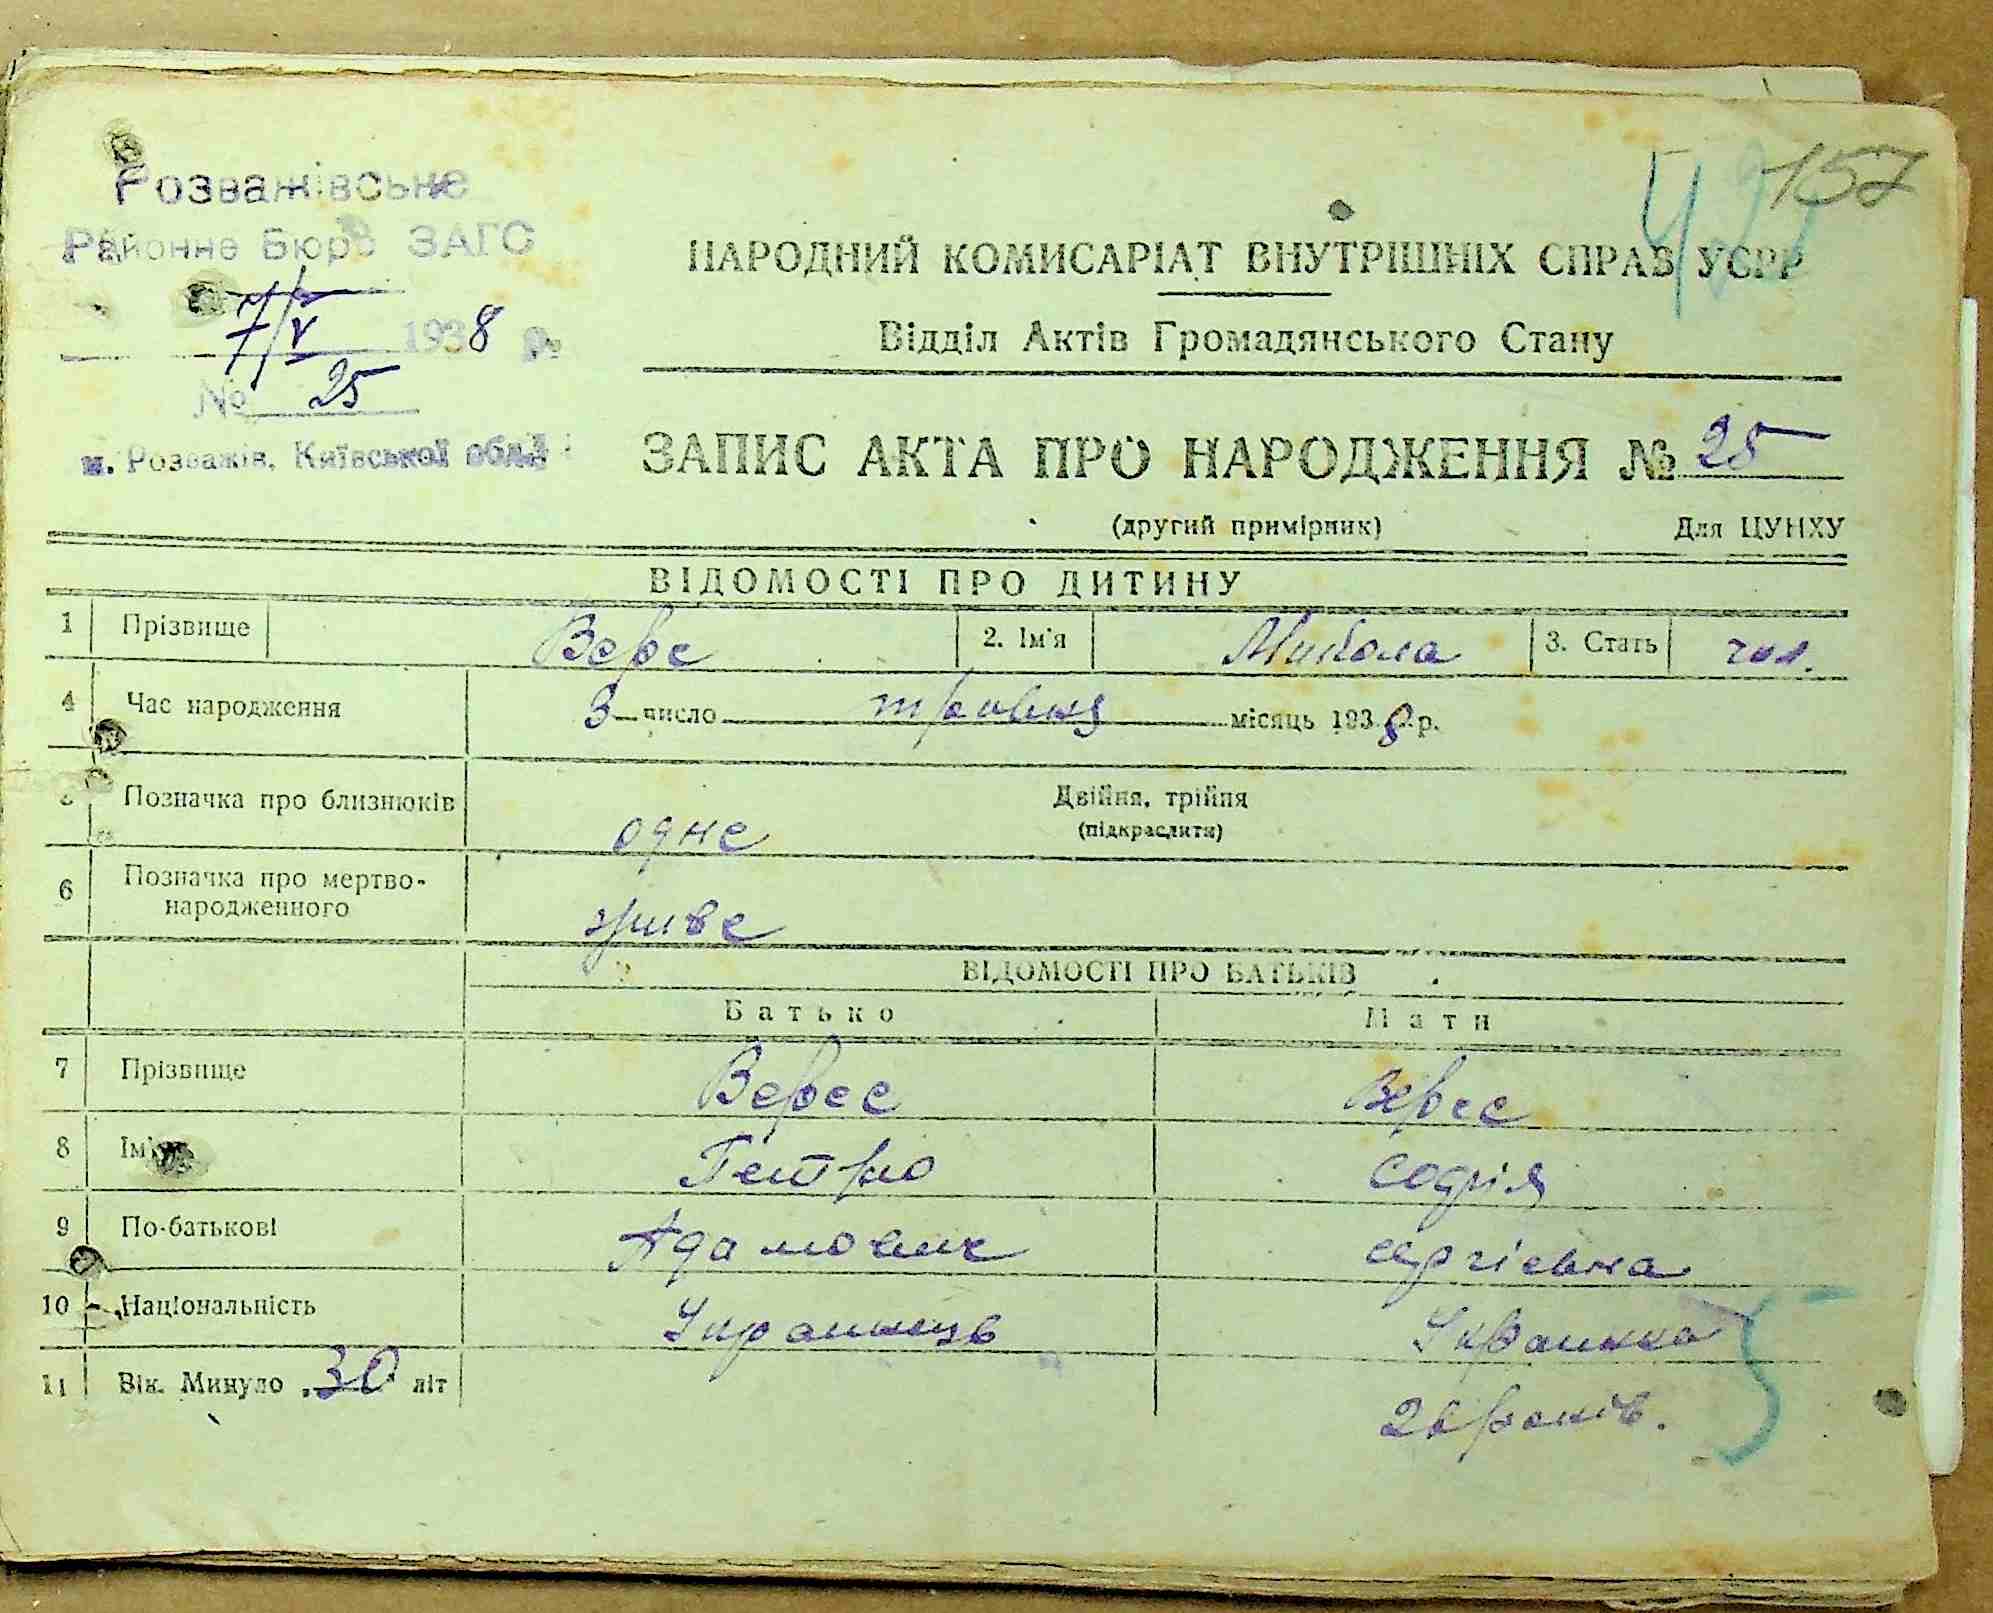 157
Розважівське
Районне Бюро ЗАГС
7/V 1938 р.
№ 25
м. Розважів, Київської обл.
НАРОДНИЙ КОМИСАРІАТ ВНУТРІШНІХ СПРАВ УСРР
Відділ Актів Громадянського Стану
ЗАПИС АКТА ПРО НАРОДЖЕННЯ № 25
(другий примірник) Для ЦУНХУ
ВІДОМОСТІ ПРО ДИТИНУ
1 Прізвище Верес 2. Ім'я Микола 3. Стать чол.
4 Час народження 3 число травня місяць 1938 р.
5 Позначка про близнюків одне Двійня, трійня
(підкреслити)
6 Позначка про мертво-
народженного живе
ВІДОМОСТІ ПРО БАТЬКІВ
Батько Мати
7 Прізвище Верес Верес
8 Ім'я Петро Софія
9 По-батькові Адамович Сергієвна
10 Національність Українець Українка
11 Вік. Минуло 30 літ 26 років.
5